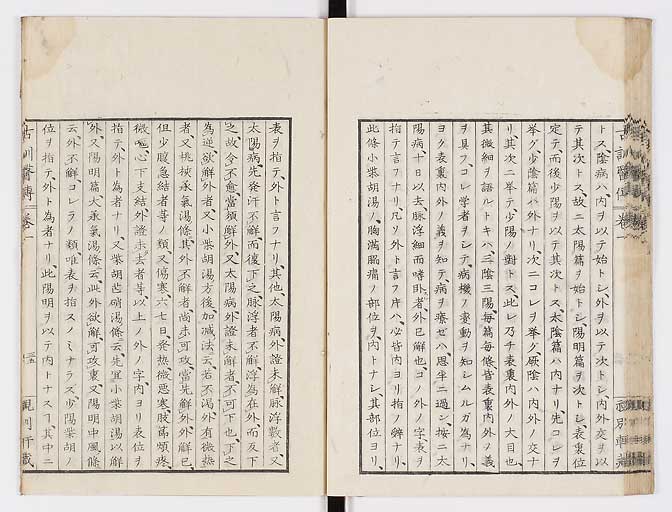 トス、陰病ハ、内ヲ以テ始トシ、外ヲ以テ次トシ、内外交ヲ以
テ其次トス、故ニ太陽篇ヲ始トシ、陽明篇ヲ次トシ、表裏位
定テ而後少陽ヲ以テ其次トス、太陰篇ハ内ナリ、先コレヲ
挙グ、少陰篇ハ外ナリ、次ニコレヲ挙グ、厥陰ハ内外ノ交ナ
リ、其次ニ挙テ少陽ノ對トス、此レ乃チ表裏内外ノ大目也、
其微細ヲ語ルトキハ、三陰三陽、毎篇毎條皆表裏内外ノ義
ヲ具フ、コレ学者ヲシテ、病機ノ変動ヲ知シムルガ為ナリ、
ヨク表裏内外ノ義ヲ知テ、病ヲ療セハ、思半ニ過ン、按ニ太
陽病、十日以去、脉浮細而嗜臥者、外已解也、コノ外ノ字、表ヲ
指テ言フナリ、凡ソ外ト言フ片ハ、必皆内ヨリ指ノ辨ナリ、
此條小柴胡湯ノ、胸満脇痛ノ部位ヲ、内トナシ、其部位ヨリ、
表ヲ指テ、外ト言フナリ、其他、太陽病外證未解、脉浮数者、又
太陽病、先発汗不解、而復下之、脉浮者不解、浮為在外、而反下
之、故令不愈、當須解外、又太陽病、外證未解者、不可下也、下之
為逆、欲解外者、又小柴胡湯方後加减法云、若不渇、外有微熱
者、又桃核承氣湯條、其外不解者、尚未可攻、當先解外、外解已、
但少腹急結者等ノ類、又傷寒六七日、発熱、微悪寒、肢莭煩疼、
微嘔、心下支結、外證未去者等、以上ノ外ノ字、内ヨリ表位ヲ
指テ、外ト為者ナリ、又柴胡芒硝湯條云、先宜小柴胡湯以解
外、又陽明篇大承氣湯條云、此外欲解、可攻裏、陽明中風條
云、外不解、コレラノ類、唯表ヲ指スノミナラズ、少陽柴胡ノ
位ヲ指テ、外ト為者ナリ、此陽明ヲ以テ内トナスヿ、其中ニ
古訓醫傳 巻一